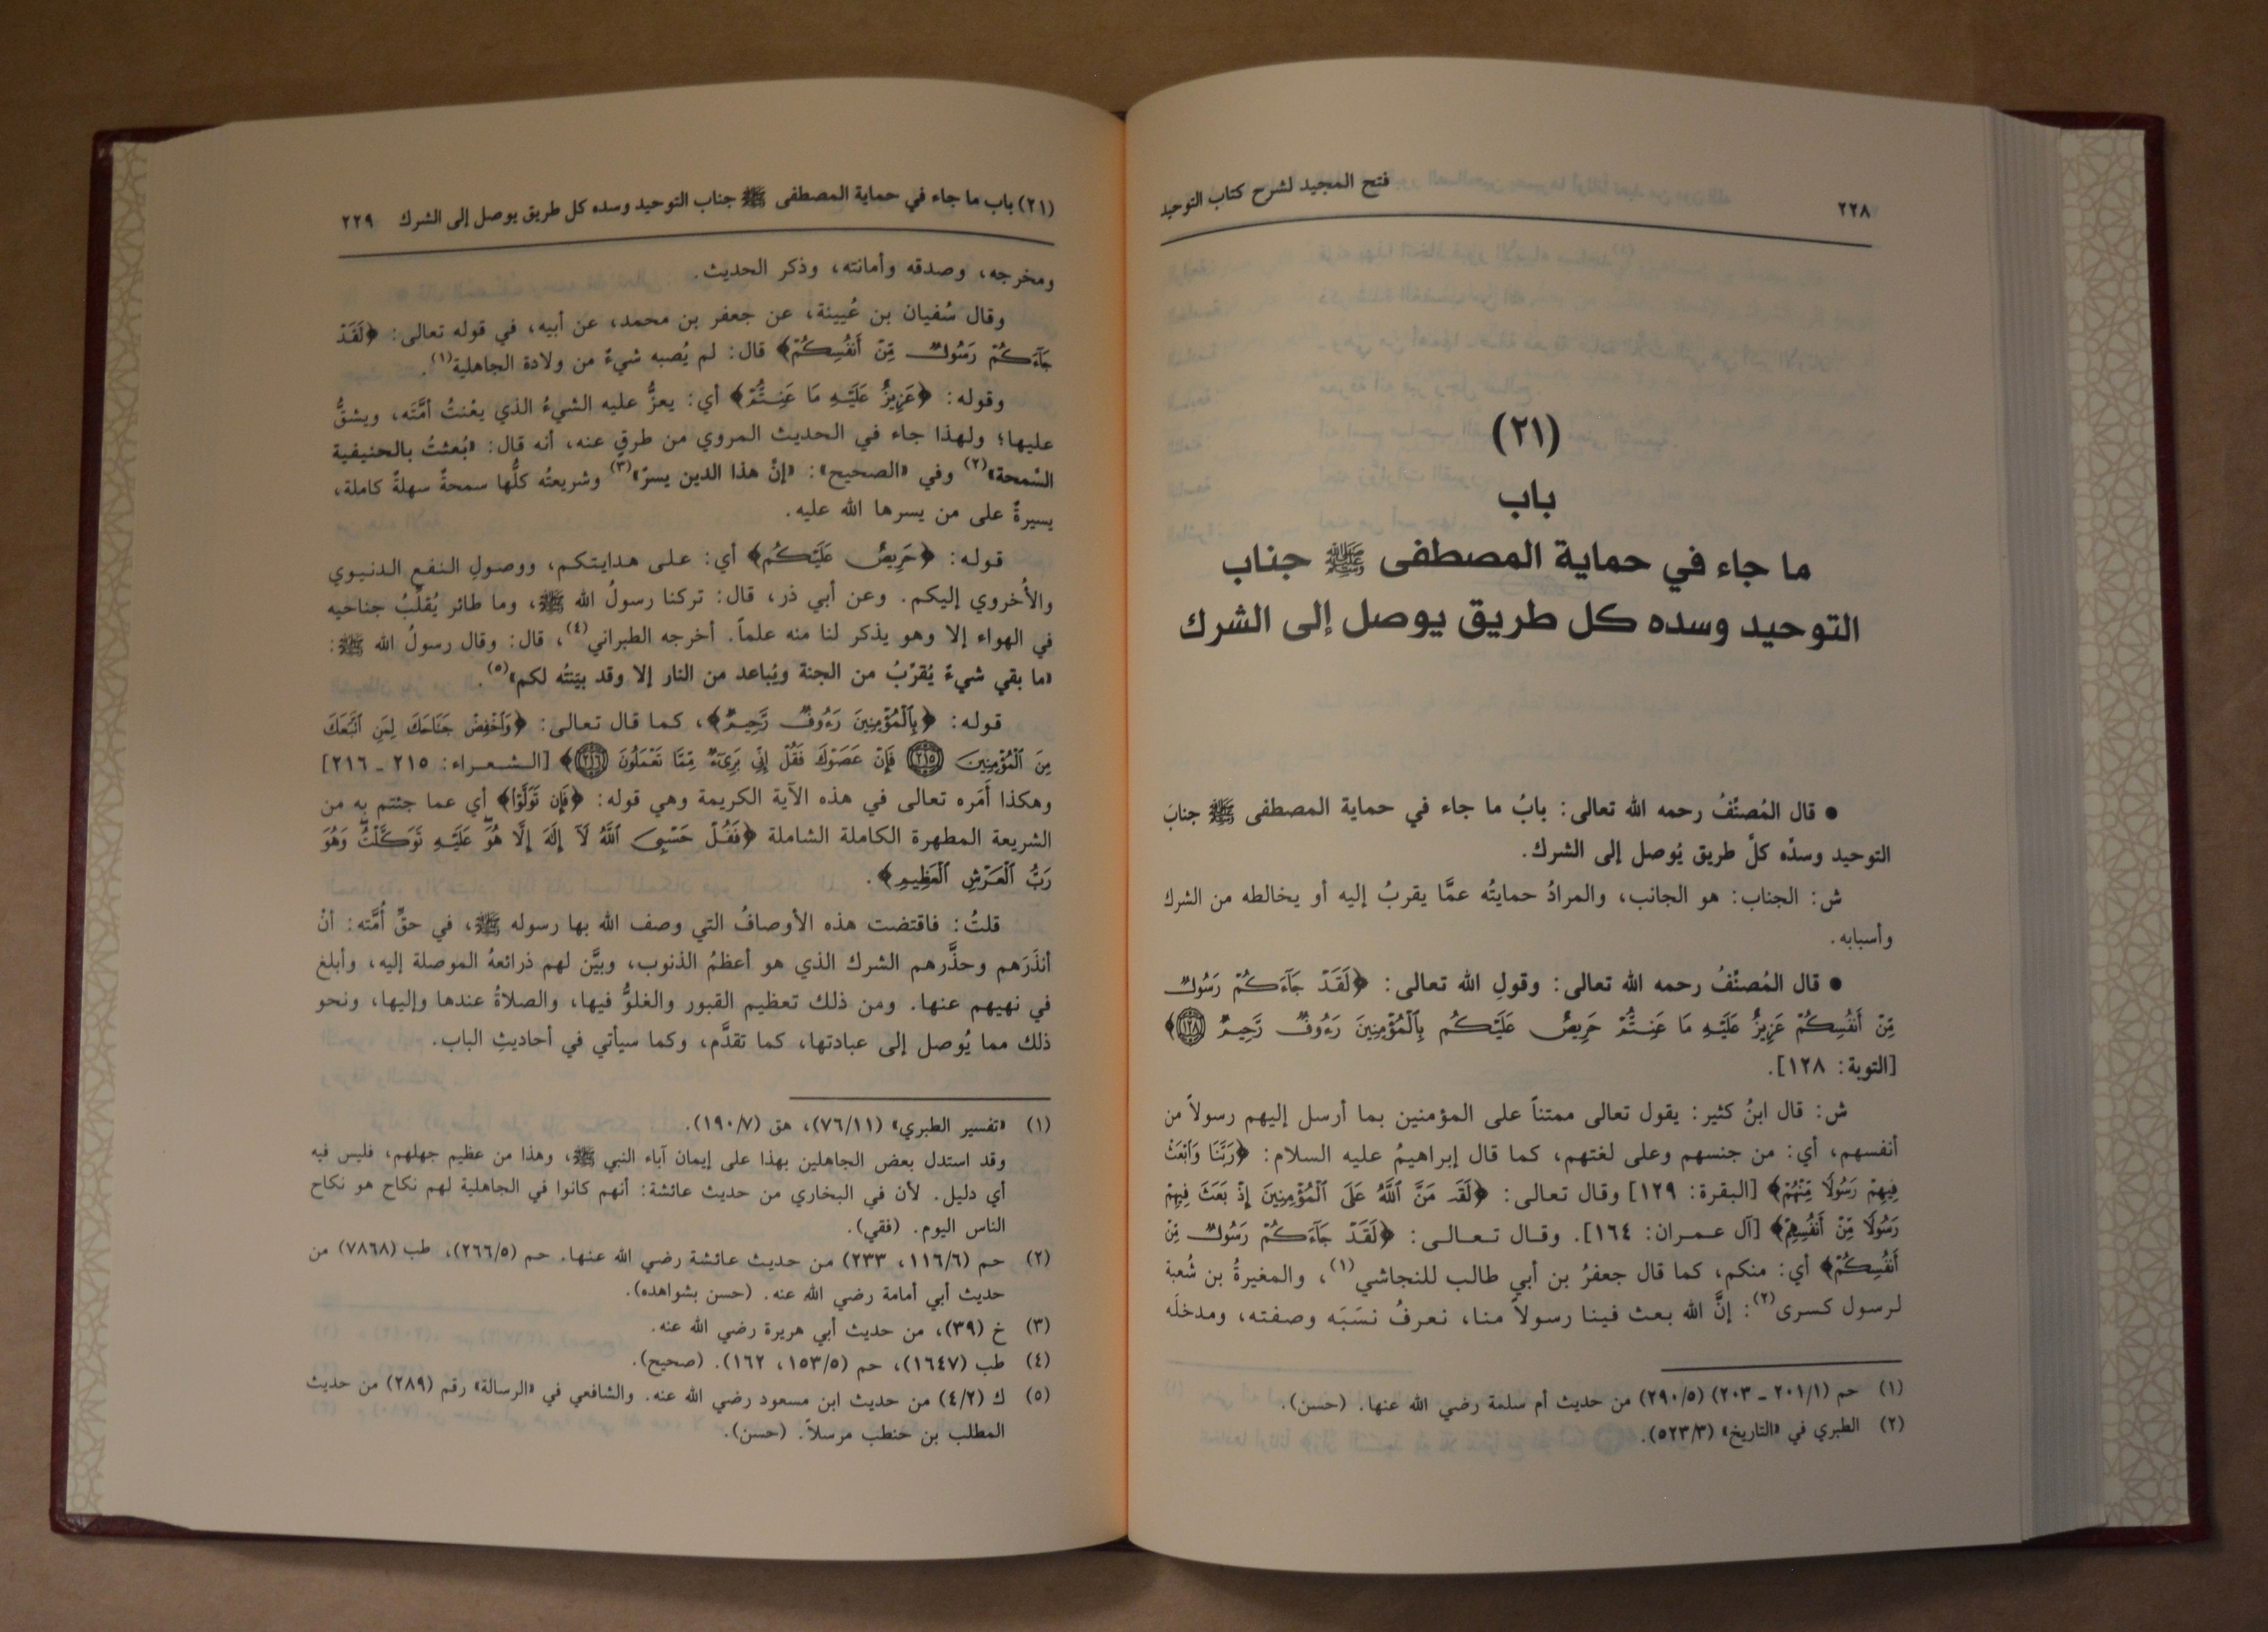 ٢٢٨ فتح المجيد لشرح كتاب التوحيد
(٢١)
باب
ما جاء في حماية المصطفى ﷺ جناب
التوحيد وسده كل طريق يوصل إلى الشرك
● قال المُصنِّفُ رحمه الله تعالى: بابُ ما جاء في حماية المصطفى ﷺ جنابَ
التوحيد وسدِّه كلَّ طريق يُوصل إلى الشرك.
ش: الجناب: هو الجانب، والمرادُ حمايتُه عمَّا يقربُ إليه أو يخالطه من الشرك
وأسبابه.
● قال المُصنِّفُ رحمه الله تعالى: وقولِ الله تعالى: ﴿لَقَدْ جَآءَكُمْ رَسُولٌ
مِّنْ أَنفُسِكُمْ عَزِيزٌ عَلَيْهِ مَا عَنِتُّمْ حَرِيصٌ عَلَيْكُم بِٱلْمُؤْمِنِينَ رَءُوفٌ رَّحِيمٌ ١٢٨﴾
[التوبة: ١٢٨].
ش: قال ابنُ كثير: يقول تعالى ممتناً على المؤمنين بما أرسل إليهم رسولاً من
أنفسهم، أي: من جنسهم وعلى لغتهم، كما قال إبراهيمُ عليه السلام: ﴿رَبَّنَا وَٱبْعَثْ
فِيهِمْ رَسُولًا مِّنْهُمْ﴾ [البقرة: ١٢٩] وقال تعالى: ﴿لَقَدْ مَنَّ ٱللَّهُ عَلَى ٱلْمُؤْمِنِينَ إِذْ بَعَثَ فِيهِمْ
رَسُولًا مِّنْ أَنفُسِهِمْ﴾ [آل عمران: ١٦٤]. وقال تعالى: ﴿لَقَدْ جَآءَكُمْ رَسُولٌ مِّنْ
أَنفُسِكُمْ﴾ أي: منكم، كما قال جعفرُ بن أبي طالب للنجاشي(١)، والمغيرةُ بن شُعبة
لرسول كسرى(٢): إنَّ الله بعث فينا رسولاً منا، نعرفُ نسَبَه وصفته، ومدخلَه
(١) حم (٢٠١/١ ـ ٢٠٣) (٢٩٠/٥) من حديث أم سلمة رضي الله عنها. (حسن).
(٢) الطبري في «التاريخ» (٥٢٣/٣).
(٢١) باب ما جاء في حماية المصطفى ﷺ جناب التوحيد وسده كل طريق يوصل إلى الشرك ٢٢٩
ومخرجه، وصدقه وأمانته، وذكر الحديث.
وقال سُفيان بن عُيينة، عن جعفر بن محمد، عن أبيه، في قوله تعالى: ﴿لَقَدْ
جَآءَكُمْ رَسُولٌ مِّنْ أَنفُسِكُمْ﴾ قال: لم يُصبه شيءٌ من ولادة الجاهلية(١).
وقوله: ﴿عَزِيزٌ عَلَيْهِ مَا عَنِتُّمْ﴾ أي: يعزُّ عليه الشيءُ الذي يعْنتُ أمَّتَه، ويشقُّ
عليها؛ ولهذا جاء في الحديث المروي من طرقٍ عنه، أنه قال: «بُعثتُ بالحنيفية
السَّمحة»(٢) وفي «الصحيح»: «إنَّ هذا الدين يسرٌ»(٣) وشريعتُه كلُّها سمحةٌ سهلةٌ كاملة،
يسيرةٌ على من يسرها الله عليه.
قوله: ﴿حَرِيصٌ عَلَيْكُم﴾ أي: على هدايتكم، ووصولِ النفع الدنيوي
والأُخروي إليكم. وعن أبي ذر، قال: تركنا رسولُ الله ﷺ، وما طائر يُقلِّبُ جناحيه
في الهواء إلا وهو يذكر لنا منه علماً. أخرجه الطبراني(٤)، قال: وقال رسولُ الله ﷺ:
«ما بقي شيءٌ يُقرِّبُ من الجنة ويُباعد من النار إلا وقد بيّنتُه لكم»(٥).
قوله: ﴿بِٱلْمُؤْمِنِينَ رَءُوفٌ رَّحِيمٌ﴾، كما قال تعالى: ﴿وَٱخْفِضْ جَنَاحَكَ لِمَنِ ٱتَّبَعَكَ
مِنَ ٱلْمُؤْمِنِينَ ٢١٥ فَإِنْ عَصَوْكَ فَقُلْ إِنِّي بَرِيٓءٌ مِّمَّا تَعْمَلُونَ ٢١٦﴾ [الشعراء: ٢١٥ ـ ٢١٦]
وهكذا أَمَره تعالى في هذه الآية الكريمة وهي قوله: ﴿فَإِن تَوَلَّوْا۟﴾ أي عما جئتم به من
الشريعة المطهرة الكاملة الشاملة ﴿فَقُلْ حَسْبِىَ ٱللَّهُ لَآ إِلَٰهَ إِلَّا هُوَ عَلَيْهِ تَوَكَّلْتُ وَهُوَ
رَبُّ ٱلْعَرْشِ ٱلْعَظِيمِ﴾.
قلتُ: فاقتضت هذه الأوصافُ التي وصف الله بها رسوله ﷺ، في حقِّ أُمَّته: أنْ
أنذَرَهم وحذَّرهم الشرك الذي هو أعظمُ الذنوب، وبيَّن لهم ذرائعهُ الموصلة إليه، وأبلغ
في نهيهم عنها. ومن ذلك تعظيم القبور والغلوُّ فيها، والصلاةُ عندها وإليها، ونحو
ذلك مما يُوصل إلى عبادتها، كما تقدَّم، وكما سيأتي في أحاديثِ الباب.
(١) «تفسير الطبري» (٧٦/١١)، هق (١٩٠/٧).
وقد استدل بعض الجاهلين بهذا على إيمان آباء النبي ﷺ، وهذا من عظيم جهلهم، فليس فيه
أي دليل. لأن في البخاري من حديث عائشة: أنهم كانوا في الجاهلية لهم نكاح هو نكاح
الناس اليوم. (فقي).
(٢) حم (١١٦/٦، ٢٣٣) من حديث عائشة رضي الله عنها. حم (٢٦٦/٥)، طب (٧٨٦٨) من
حديث أبي أمامة رضي الله عنه. (حسن بشواهده).
(٣) خ (٣٩)، من حديث أبي هريرة رضي الله عنه.
(٤) طب (١٦٤٧)، حم (١٥٣/٥، ١٦٢). (صحيح).
(٥) ك (٤/٢) من حديث ابن مسعود رضي الله عنه. والشافعي في «الرسالة» رقم (٢٨٩) من حديث
المطلب بن حنطب مرسلاً. (حسن).